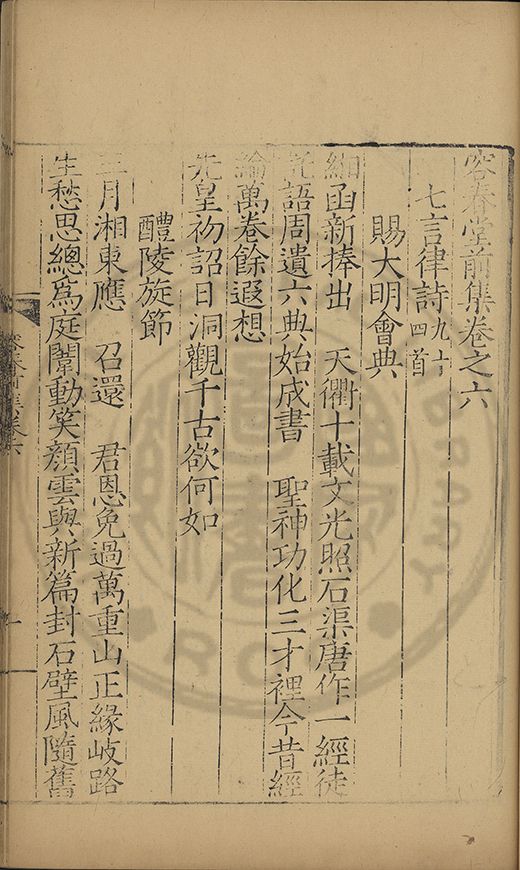 容春堂前集卷之六
七言律詩九十四首
賜大明會典
緗函新捧出 天衢十載文光照石渠唐作一經徒
託語周遺六典始成書 聖神功化三才裡今昔經
綸萬卷餘遐想
先皇初詔日洞觀千古欲何如
醴陵旋節
三月湘東應 召還 君恩免過萬重山正緣岐路
生愁思總為庭闈動笑顏雲與新篇封石壁風隨舊
容春前集卷六
一